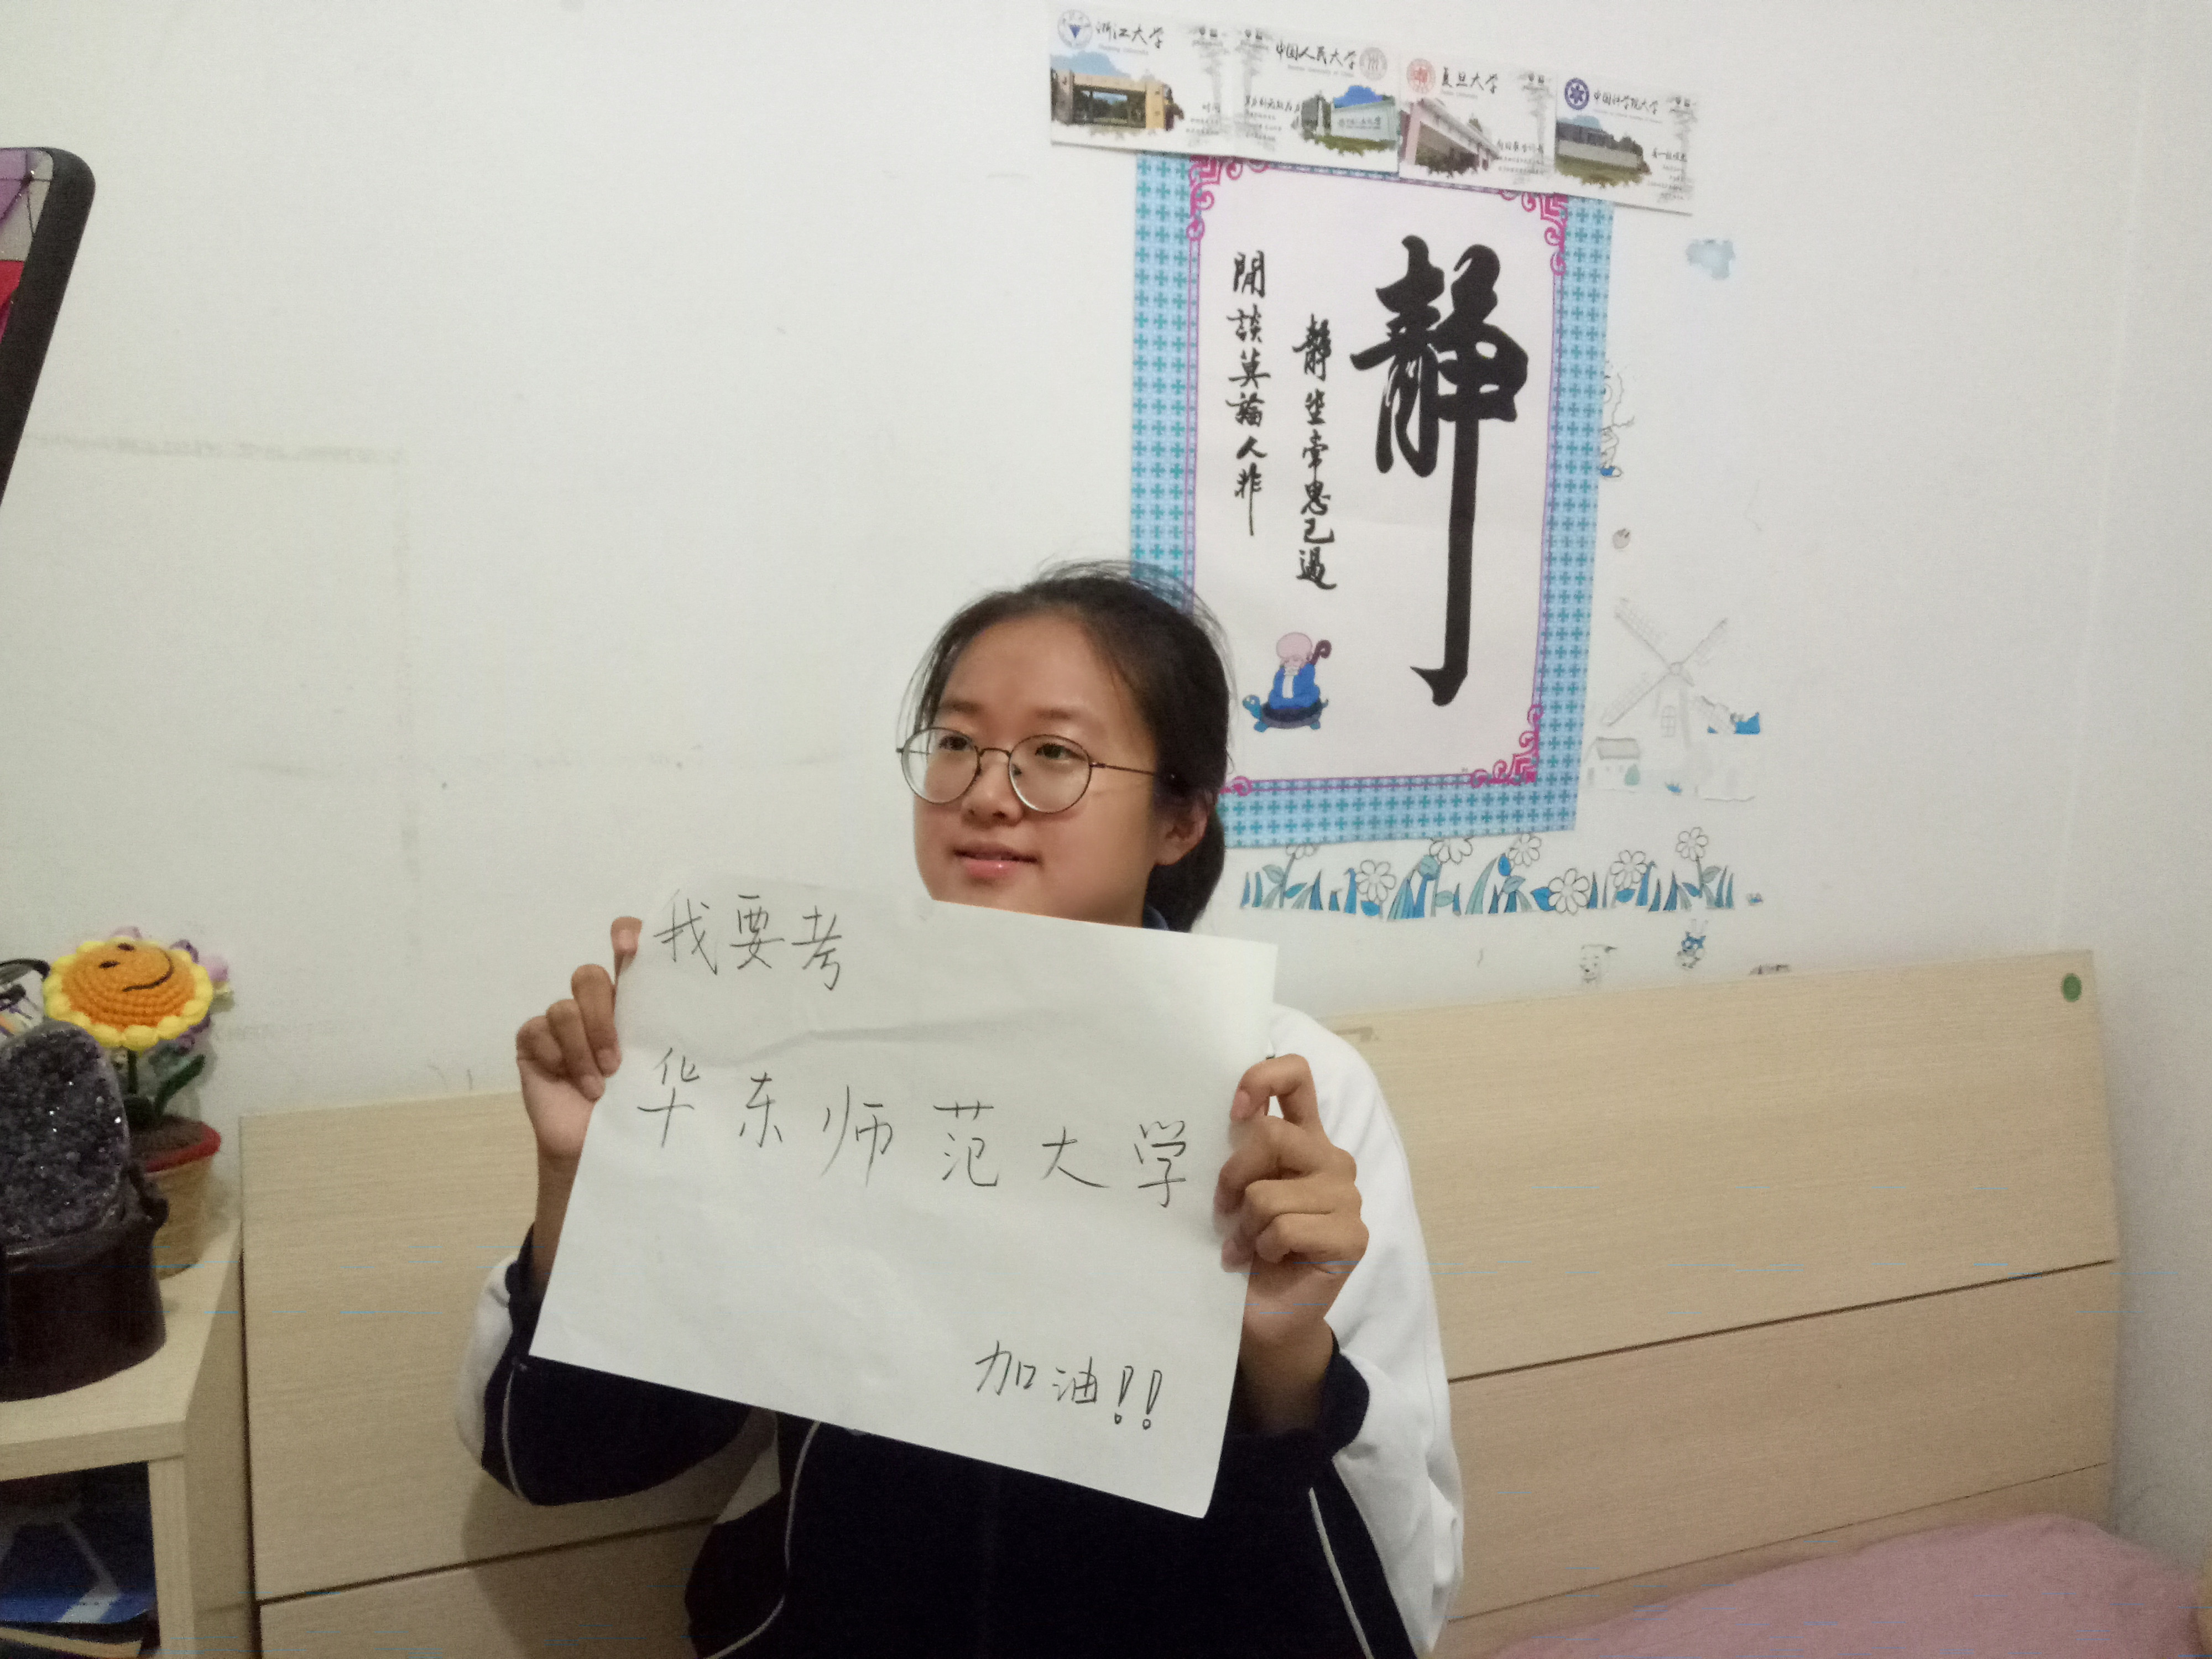 浙江大学
中国人民大学
复旦大学
中国科学院大学
静
静坐常思己過
閒談莫論人非
我要考
华东师范大学
加油!!